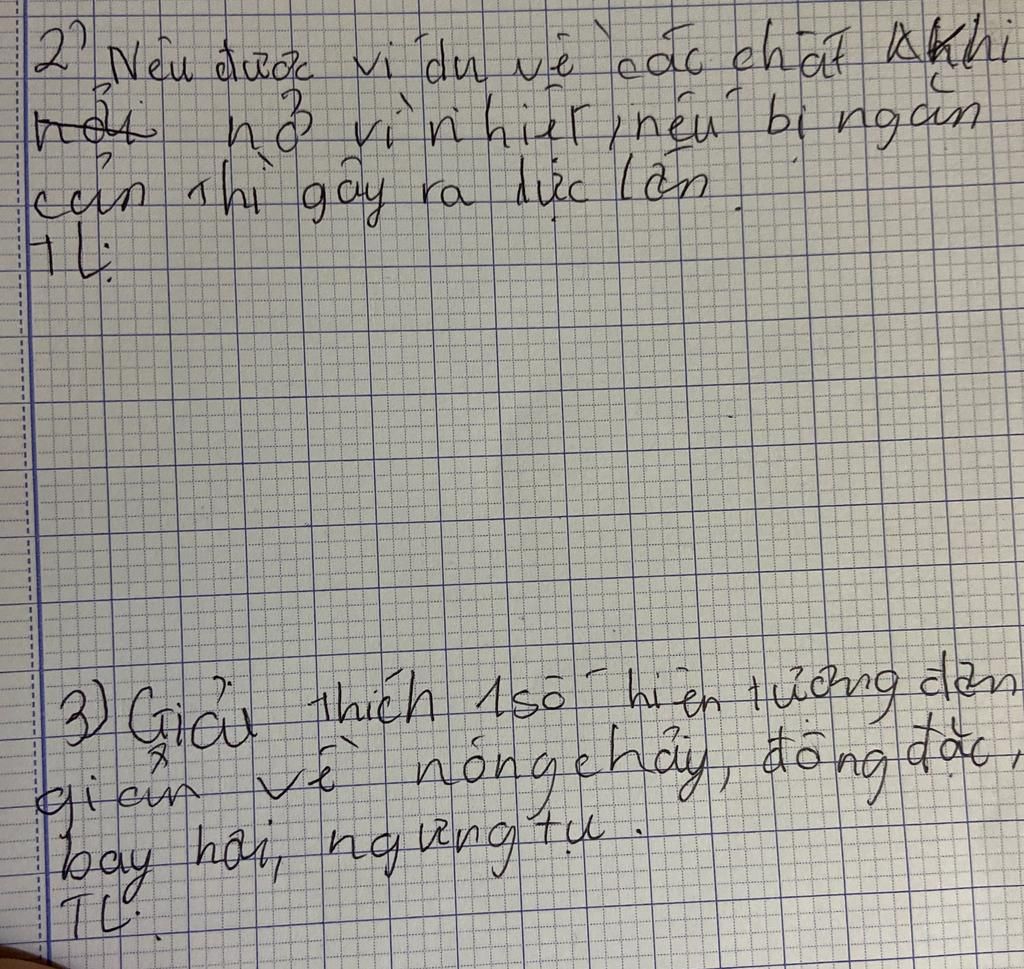 2) Nêu được ví dụ về các chất khi
nở vì nhiệt, nếu bị ngăn
cản thì gây ra lực lớn.
TL:
3) Giải thích 1 số hiện tượng đơn
giản về nóng chảy, đông đặc,
bay hơi, ngưng tụ.
TL: